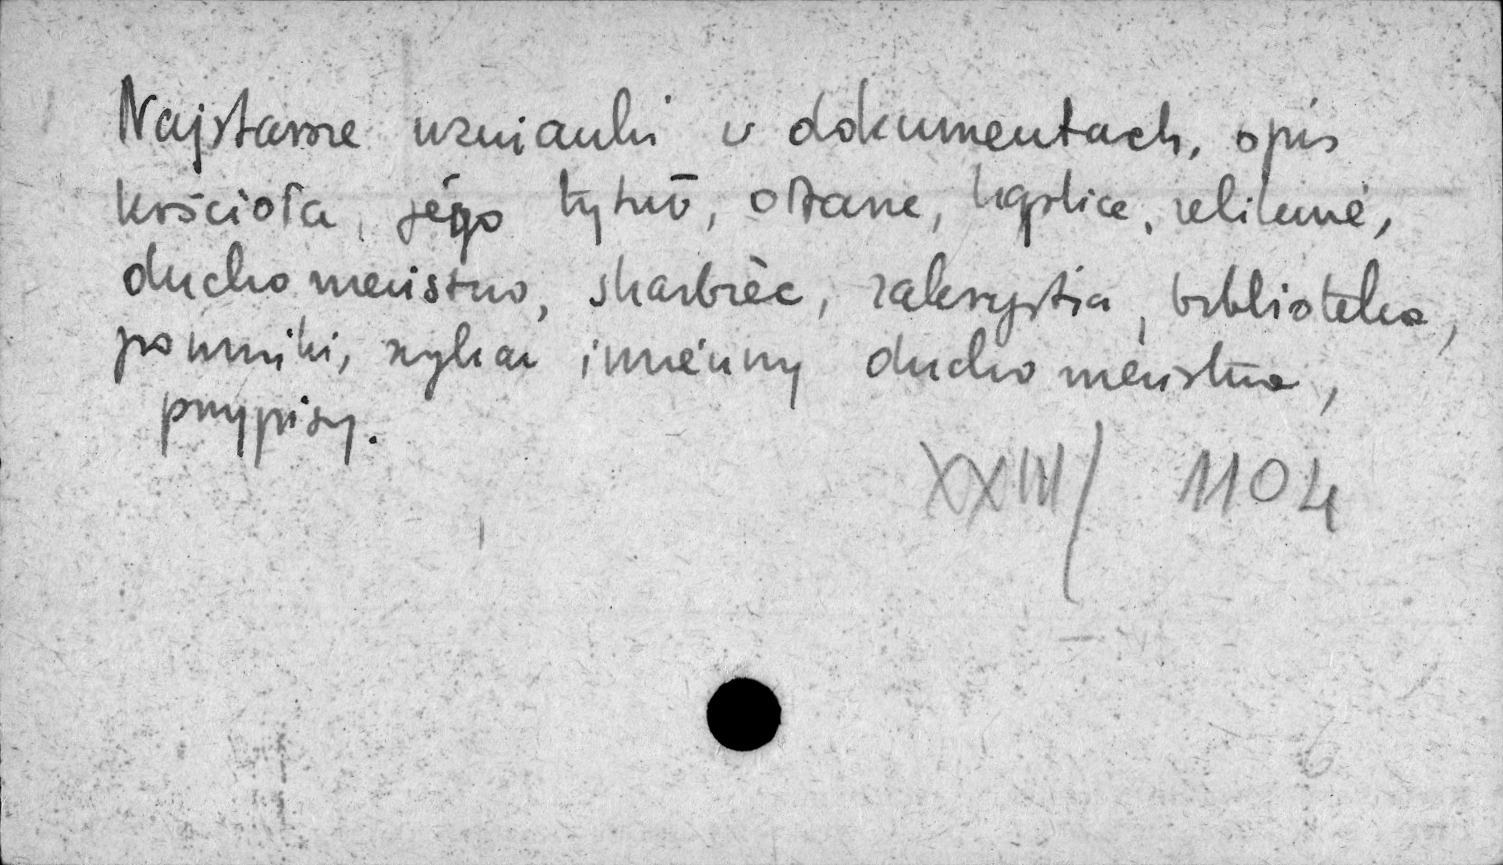 Najstarsze wzmianki w dokumentach, opis
kościoła, jego tytuł, ołtarze, kaplice, relikwie,
duchowieństwo, skarbiec, zakrystia, biblioteka,
pomniki, wykaz imienny duchowieństwa,
przypisy.
XXIII/ 1104